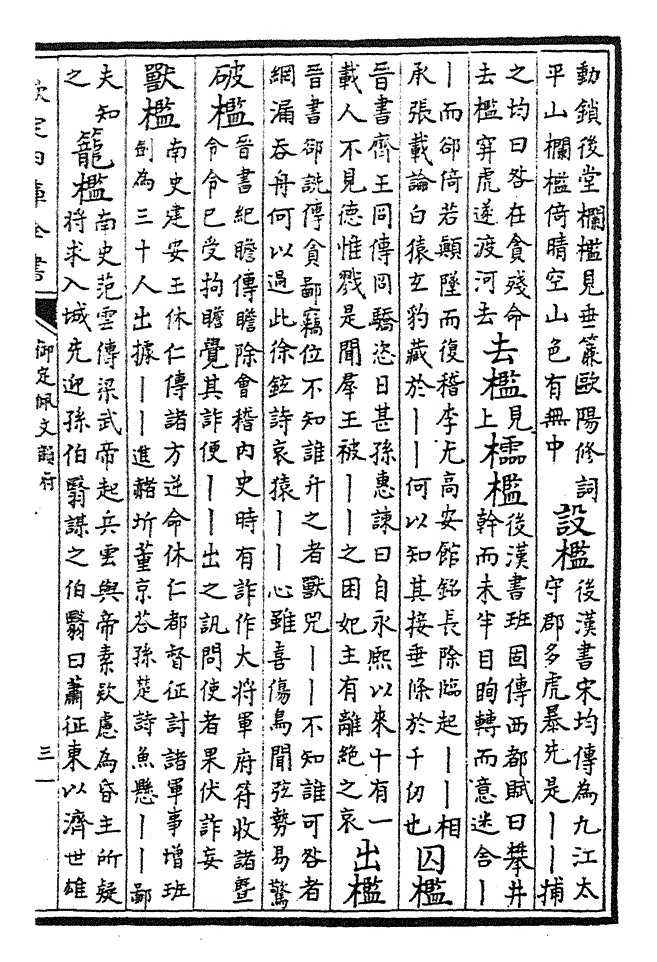 動鎖後堂欄檻見垂簾歐陽修詞
平山欄檻倚晴空山色有無中
設檻
後漢書宋均傳為九江太
守郡多虎暴先是丨丨捕
之均曰咎在貪殘命
去檻穽虎遂渡河去
去檻
見
上
檽檻
後漢書班固傳西都賦曰攀井
幹而未半目眴轉而意迷舍丨
丨而郤倚若顛墜而復稽李尤高安館銘長除臨起丨丨相
承張載論白猿玄豹藏於丨丨何以知其接垂條於千仞也
囚檻
晉書齊王冏傳冏驕恣日甚孫惠諫曰自永熙以來十有一
載人不見德惟戮是聞羣王被丨丨之困妃主有離絶之哀
出檻
晉書郤詵傳貪鄙竊位不知誰升之者獸兕丨丨不知誰可咎者
網漏吞舟何以過此徐鉉詩哀猿丨丨心雖喜傷鳥聞弦勢易驚
破檻
晉書紀瞻傳瞻除會稽内史時有詐作大將軍府符收諸曁
令令已受拘瞻覺其詐便丨丨出之訊問使者果伏詐妄
獸檻
南史建安王休仁傳諸方逆命休仁都督征討諸軍事增班
劍為三十人出據丨丨進赭圻董京荅孫楚詩魚懸丨丨鄙
夫知
之
籠檻
南史范雲傳梁武帝起兵雲與帝素欵慮為昏主所疑
將求入城先迎孫伯翳謀之伯翳曰蕭征東以濟世雄
欽定四庫全書
御定佩文韻府
三